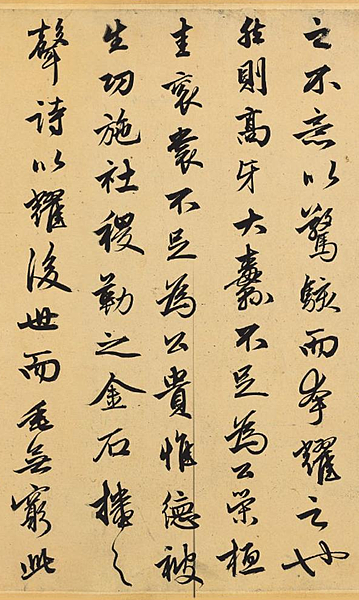 之不意以驚駭而夸耀之也
然則高牙大纛不足為公榮桓
圭袞裳不足為公貴惟德被
生功施社稷勒之金石播之
聲詩以耀後世而垂無窮此